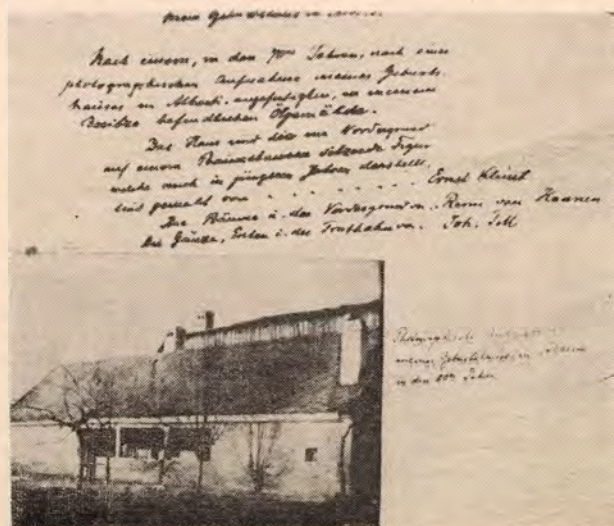 Mein Geburtshaus in
Nach einem, in den 70er Jahren, nach einer
photographischen Aufnahme meines Geburts-
hauses in angefertigten, in meinem
Besitze befindlichen Ölgemälde.
Das Haus und die im Vordergrund
auf einem Baumstamme sitzende Figur
welche mich in jüngeren Jahren darstellt,
sind gemalt von . . . . . . . Ernst Klimt
Die Bäume i. der Vordergrund v. Remi van Haanen
Die Gänse, Enten i. der Truthahn v. Joh. Till
Photographische Aufnahme
meines Geburtshauses in
in den 80er Jahren